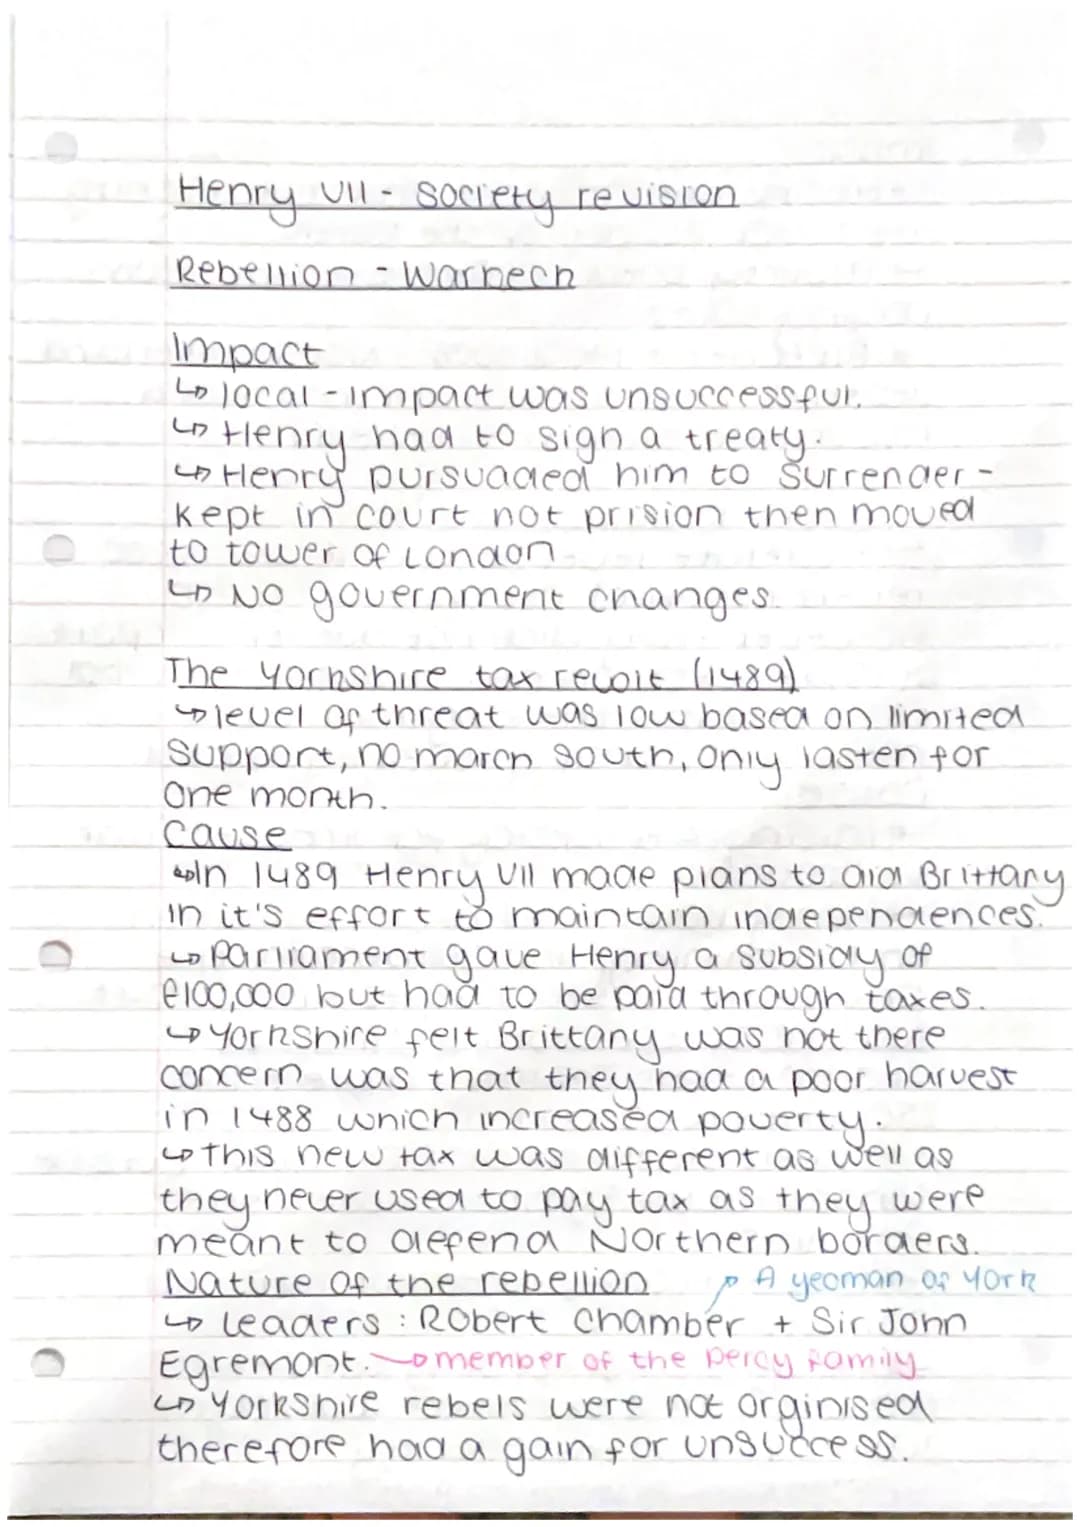 Henry VII - Society revision
Rebellion - Warbech
Impact
↳ local - impact was unsuccessful.
↳ Henry had to sign a treaty.
↳ Henry pursuaded him to surrender -
kept in court not prision then moved
to tower of London
↳ No government changes.
The Yorkshire tax revolt (1489)
↳ level of threat was low based on limited
support, no march south, only lasten for
one month.
Cause
↳ In 1489 Henry VII made plans to aid Brittany
in it's effort to maintain independences.
↳ Parliament gave Henry a subsidy of
£100,000 but had to be paid through taxes.
↳ Yorkshire felt Brittany was not there
concern was that they had a poor harvest
in 1488 which increased poverty.
↳ this new tax was different as well as
they never used to pay tax as they were
meant to defend Northern borders.
Nature of the rebellion → A yeoman of York
↳ leaders : Robert Chamber + Sir John
Egremont. → member of the percy family
↳ Yorkshire rebels were not orginised
therefore had a gain for unsuccess.